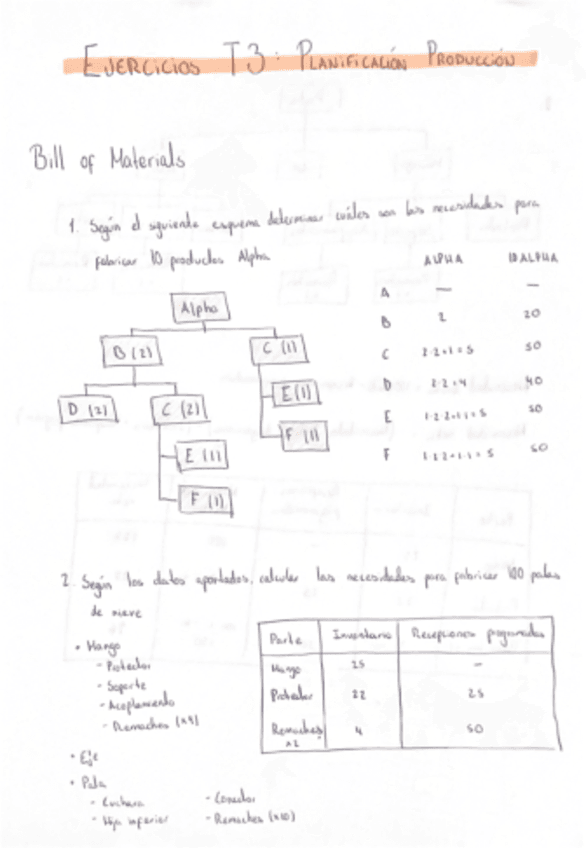 EJERCICIOS T3: PLANIFICACIÓN PRODUCCIÓN
Bill of Materials
1. Según el siguiente esquema determinar cuáles son las necesidades para
fabricar 10 productos Alpha
ALPHA 10 ALPHA
A — —
B 2 20
C 2·2+1=5 50
D 2·2=4 40
E 1·2·2+1·1=5 50
F 1·2·2+1·1=5 50
Alpha
B (2) C (1)
D (2) C (2) E (1)
F (1)
E (1)
F (1)
2. Según los datos aportados, calcular las necesidades para fabricar 100 palas
de nieve
• Mango
- Protector
- Soporte
- Acoplamiento
- Remaches
• Eje
• Pala
- Cuchara
- Hoja inferior
- Conector
- Remaches (x10)
Parte Inventario Recepciones programadas
Mango 25 —
Protector 22 25
Remaches 4 50
x2